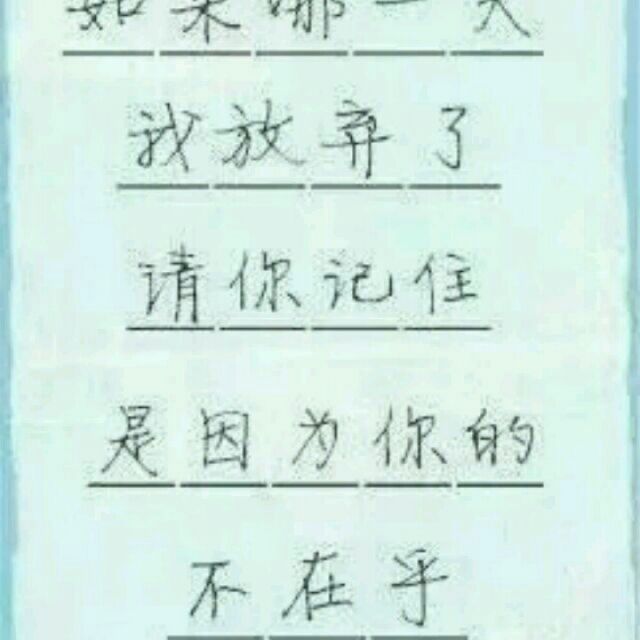 如果哪一天
我放弃了
请你记住
是因为你的
不在乎